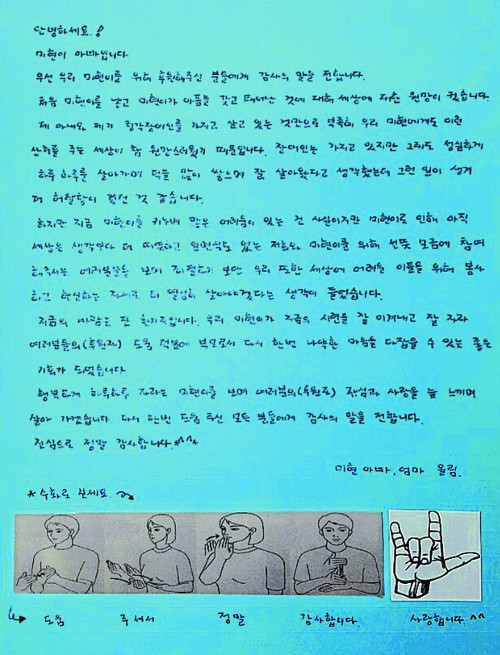 안녕하세요.
미현이 아빠입니다.
우선 우리 미현이를 위해 후원해주신 분들에게 감사의 말을 전합니다.
처음 미현이를 낳고 미현이가 아픔을 갖고 태어난 것에 대해 세상에 대한 원망이 컸습니다.
제 아내와 제가 청각장애인을 가지고 살고 있는 것만으로 벅찬데 우리 미현에게도 이런
상처를 주는 세상이 참 원망스러웠기 때문입니다. 장애인은 가지고 있지만 그래도 성실하게
하루하루를 살아가며 덕을 많이 쌓으며 잘 살아왔다고 생각했는데 그런 일이 생겨
더 허탈함이 컸던 것 같습니다.
하지만 지금 미현이를 키우며 많은 어려움이 있는 건 사실이지만 미현이로 인해 아직
세상은 생각보다 더 따뜻하고 일면식도 없는 저희와 미현이를 위해 선뜻 모금에 참여
해주시는 여러분들을 보며 좌절하기 보단 우리 또한 세상에 어려운 이웃을 위해 봉사
하고 헌신하는 자세로 더 열심히 살아야겠다는 생각이 들었습니다.
지금의 바람은 단 한가지입니다. 우리 미현이가 지금의 시련을 잘 이겨내고 잘 자라
여러분들의(후원자) 도움 덕분에 부모로서 다시 한번 나약한 마음을 다잡을 수 있는 좋은
기회가 되었습니다
행복하게 하루하루 자라는 미현이를 보며 여러분의(후원자) 진심과 사랑을 늘 느끼며
살아 가겠습니다. 다시 한번 도움 주신 모든 분들에게 감사의 말을 전합니다.
진심으로 정말 감사합니다.^^^
미현 아빠, 엄마 올림.
* 수화로 보세요.
도움 주셔서 정말 감사합니다 사랑합니다 ^^